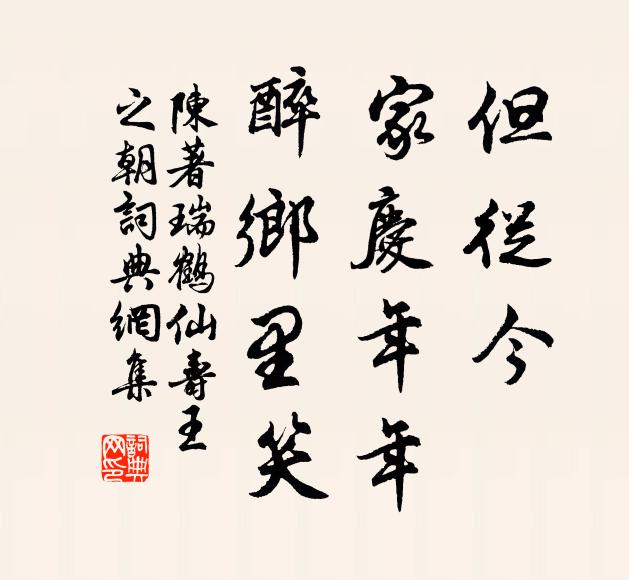 但從今
家慶年年
醉鄉里笑
陳著瑞鶴仙壽王
之朝詞典網集
詞典
网印